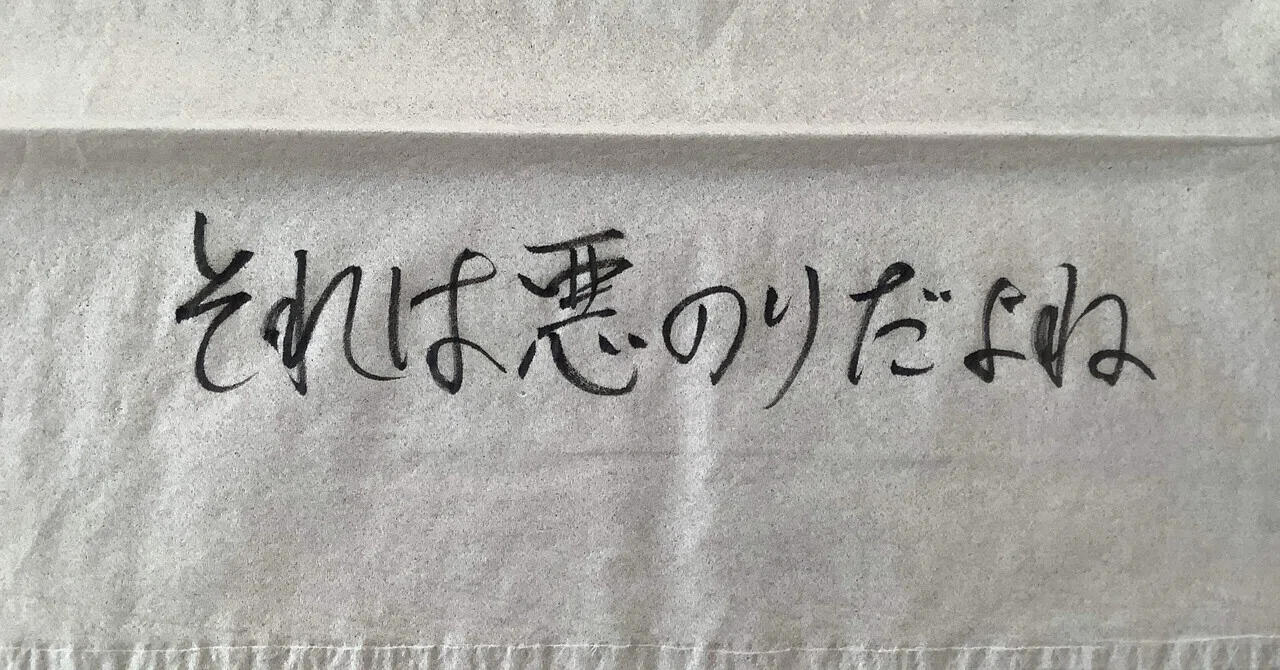 それは悪のりだよね